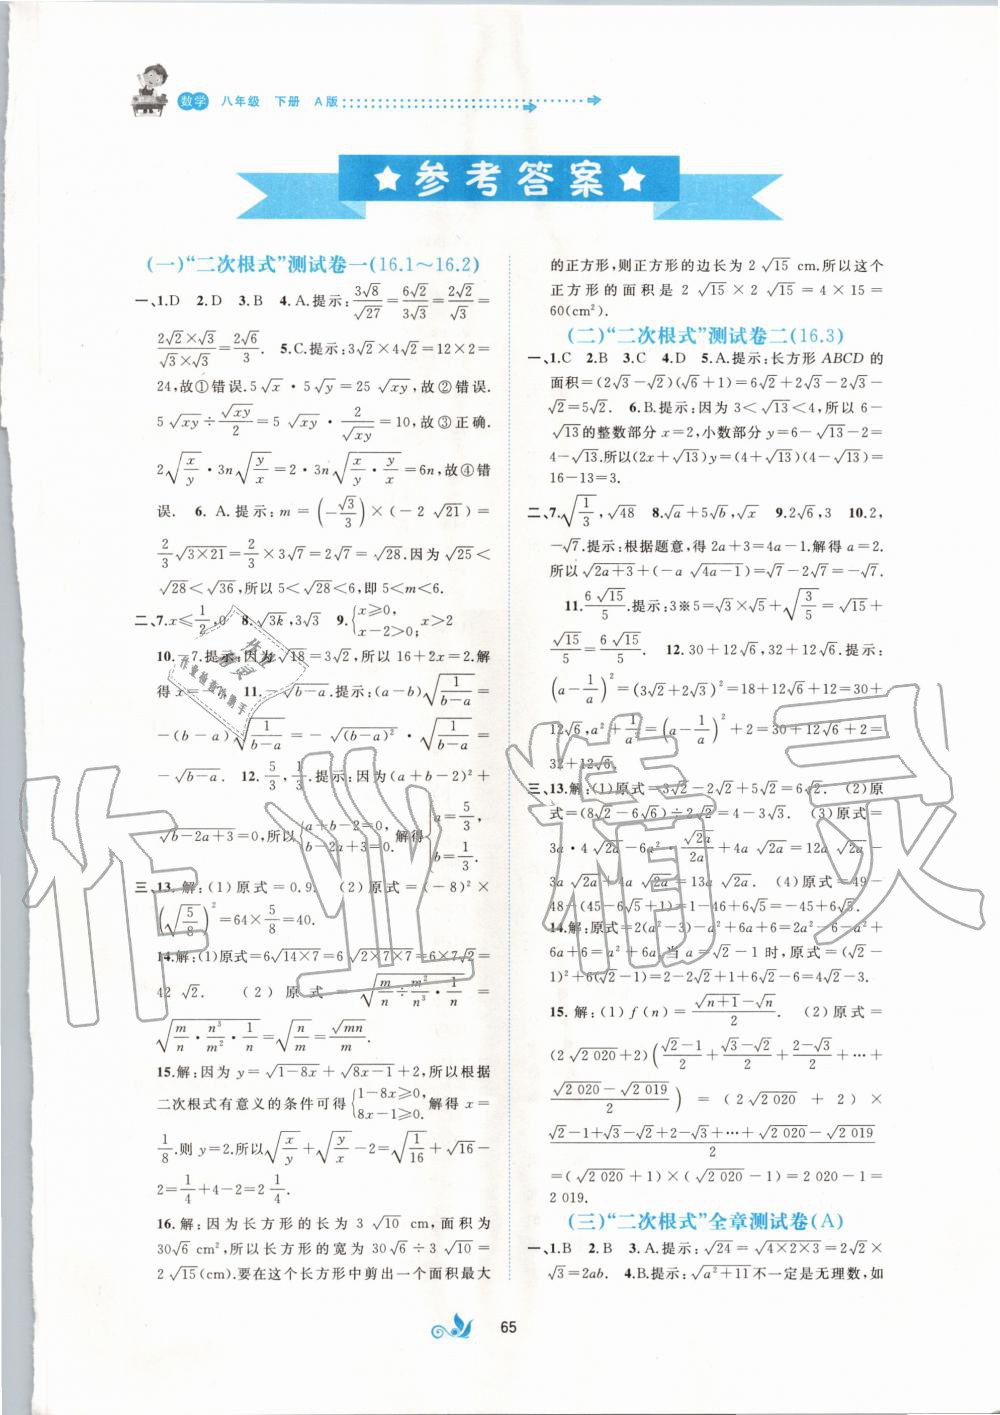 数学 八年级 下册 A版
参考答案
(一)“二次根式”测试卷一(16.1～16.2)
一、1.D 2.D 3.B 4.A.提示:3√8/√27=6√2/3√3=2√2/√3=
2√2×√3/√3×√3=2√6/3. 5.C.提示:3√2×4√2=12×2=
24,故①错误.5√x·5√y=25√xy,故②错误.
5√xy÷√xy/2=5√xy·2/√xy=10,故③正确.
2√(x/y)·3n√(y/x)=2·3n√(x/y·y/x)=6n,故④错
误. 6.A.提示:m=(-√3/3)×(-2√21)=
2/3√(3×21)=2/3×3√7=2√7=√28.因为√25<
√28<√36,所以5<√28<6,即5<m<6.
二、7.x≤1/2,0 8.√3k,3√3 9.{x≥0, x-2>0; x>2
10.-7.提示:因为√18=3√2,所以16+2x=2.解
得x=-7. 11.-√(b-a).提示:(a-b)√(1/(b-a))=
-(b-a)√(1/(b-a))=-√((b-a)²·1/(b-a))=
-√(b-a). 12.5/3,1/3.提示:因为(a+b-2)²+
√(b-2a+3)=0,所以{a+b-2=0, b-2a+3=0. 解得{a=5/3, b=1/3.
三、13.解:(1)原式=0.9. (2)原式=(-8)²×
(√(5/8))²=64×5/8=40.
14.解:(1)原式=6√(14×7)=6√(2×7×7)=6×7√2=
42√2. (2)原式=√(m/n÷m²/n³·1/n)=
√(m/n·n³/m²·1/n)=√(n/m)=√mn/m.
15.解:因为y=√(1-8x)+√(8x-1)+2,所以根据
二次根式有意义的条件可得{1-8x≥0, 8x-1≥0. 解得x=
1/8.则y=2.所以√(x/y)+√(y/x)-2=√(1/16)+√16-
2=1/4+4-2=2 1/4.
16.解:因为长方形的长为3√10 cm,面积为
30√6 cm²,所以长方形的宽为30√6÷3√10=
2√15(cm).要在这个长方形中剪出一个面积最大
的正方形,则正方形的边长为2√15 cm.所以这个
正方形的面积是2√15×2√15=4×15=
60(cm²).
(二)“二次根式”测试卷二(16.3)
一、1.C 2.B 3.C 4.D 5.A.提示:长方形ABCD的
面积=(2√3-√2)(√6+1)=6√2+2√3-2√3-
√2=5√2. 6.B.提示:因为3<√13<4,所以6-
√13的整数部分x=2,小数部分y=6-√13-2=
4-√13.所以(2x+√13)y=(4+√13)(4-√13)=
16-13=3.
二、7.√(1/3),√48 8.√a+5√b,√x 9.2√6,3 10.2,
-√7.提示:根据题意,得2a+3=4a-1.解得a=2.
所以√(2a+3)+(-a√(4a-1))=√7-2√7=-√7.
11.6√15/5.提示:3※5=√3×√5+√(3/5)=√15+
√15/5=6√15/5. 12.30+12√6,32+12√6.提示:
(a-1/a)²=(3√2+2√3)²=18+12√6+12=30+
12√6,a²+1/a²=(a-1/a)²+2=30+12√6+2=
32+12√6.
三、13.解:(1)原式=3√2-2√2+5√2=6√2. (2)原
式=(8√2-6√6)÷2√2=4-3√3. (3)原式=
3a·4√2a-6a²·√2a/2a+4a√2a=12a√2a-
3a√2a+4a√2a=13a√2a. (4)原式=49-
48-(45-6√5+1)=1-46+6√5=-45+6√5.
14.解:原式=2(a²-3)-a²+6a+6=2a²-6-a²+
6a+6=a²+6a.当a=√2-1时,原式=(√2-
1)²+6(√2-1)=2-2√2+1+6√2-6=4√2-3.
15.解:(1)f(n)=(√(n+1)-√n)/2. (2)原式=
(2√2 020+2)((√2-1)/2+(√3-√2)/2+(2-√3)/2+…+
(√2 020-√2 019)/2)=(2√2 020+2)×
(√2-1+√3-√2+2-√3+…+√2 020-√2 019)/2
=(√2 020+1)×(√2 020-1)=2 020-1=
2 019.
(三)“二次根式”全章测试卷(A)
一、1.B 2.B 3.A.提示:√24=√(4×2×3)=2√2×
√3=2ab. 4.B.提示:√(a²+11)不一定是无理数,如
65
作业精灵
作业检查小助手